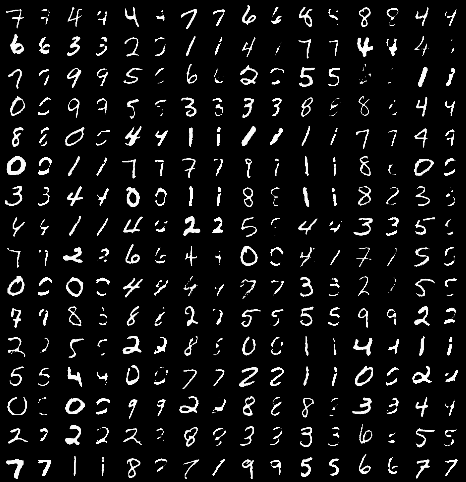 7 7 4 4 4 7 7 6 6 8 8 8 8 4 4
6 6 3 3 2 2 1 1 4 7 7 4 4 4
7 7 9 9 5 5 6 6 2 5 5 1 1
0 9 9 5 5 3 3 3 3 8 8 8 4 4
8 8 0 4 4 1 1 1 1 1 1 7 7 9 9
0 0 1 1 7 7 7 7 9 9 1 1 8 0 0
3 3 4 4 0 0 1 1 8 8 1 1 8 8 3 3
4 4 1 1 4 2 2 5 4 4 3 3 5 5
7 7 2 2 6 6 4 0 0 4 7 5 5
0 0 4 4 4 7 7 3 3 2 5 5
7 7 8 8 8 2 5 5 5 5 9 9 2 2
2 2 5 5 2 2 8 0 0 1 1 4 4 1 1
5 5 4 4 0 0 7 7 2 2 1 1 0 2 2
0 0 0 9 9 2 8 8 8 3 3 4 4
2 2 2 2 2 8 8 3 3 3 3 6 5 5
7 7 1 1 8 7 9 9 5 5 6 6 7 7